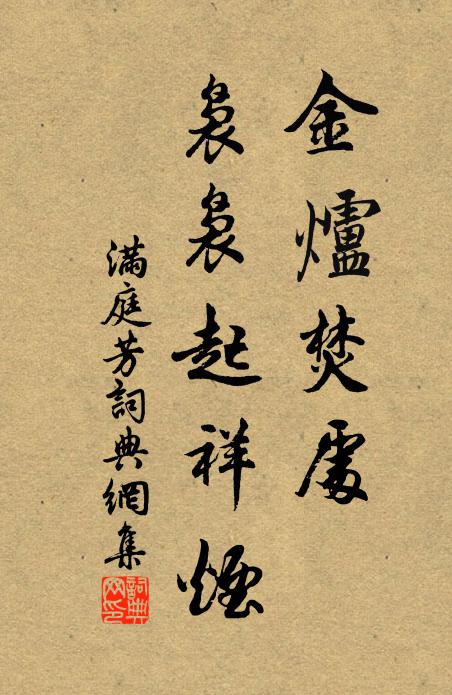 金爐焚處
裊裊起祥煙
滿庭芳詞典網集
詞典网印